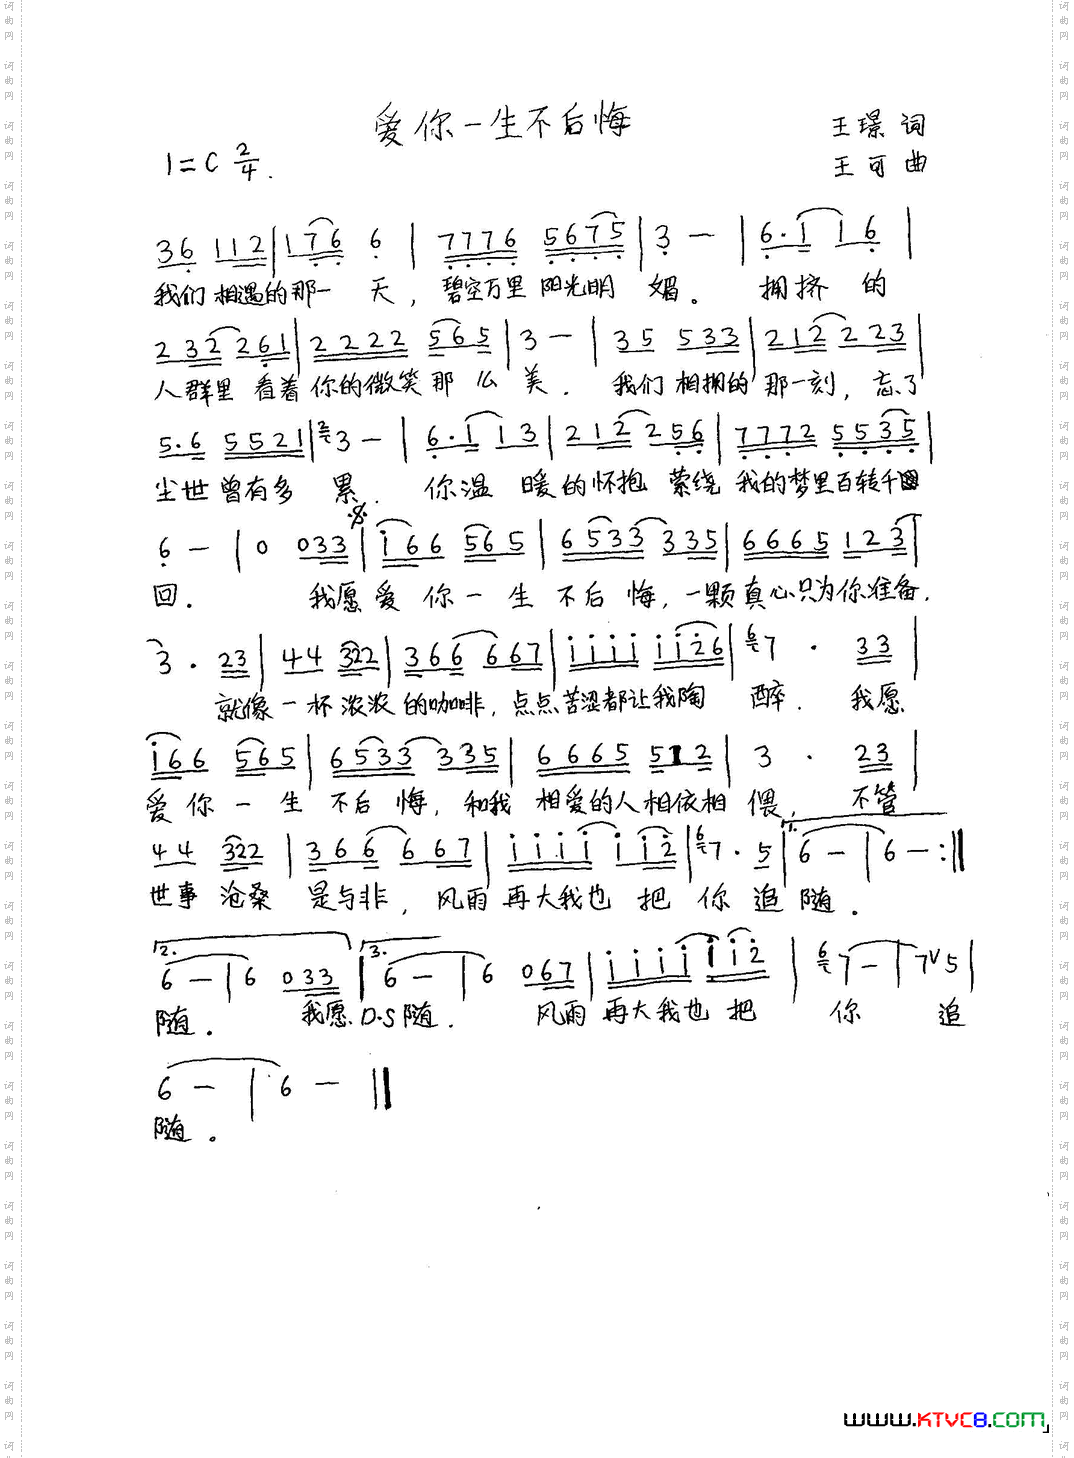 爱你一生不后悔
王璟 词
1=C 2/4.
王可 曲
36 112|176 6|7776 5675|3 —|6·1 16|
我们相遇的那一天，碧空万里阳光明媚。拥挤的
232 261|2222 565|3 —|35 533|212 223|
人群里看着你的微笑那么美．我们相拥的那一刻，忘了
5·6 5521|2 3 —|6·1 13|212 256|7772 5535|
尘世曾有多累．你温暖的怀抱萦绕我的梦里百转千
6 —|0 033|i66 565|6533 335|6665 123|
回．我愿爱你一生不后悔，一颗真心只为你准备．
3 · 23|44 322|366 667|iiii ii26|6 7 · 33|
就像一杯浓浓的咖啡，点点苦涩都让我陶醉．我愿
i66 565|6533 335|6665 512|3 · 23|
爱你一生不后悔，和我相爱的人相依相偎，不管
44 322|366 667|iiii ii2|6 7· 5|1. 6 —|6 —:‖
世事沧桑是与非，风雨再大我也把你追随．
2. 6 —|6 033|3. 6 —|6 067|iiii ii2|6 7 —|7∨5|
随．我愿 D.S 随．风雨再大我也把你追
6 —|6 —‖
随。
www.KTVC8.com
词曲网